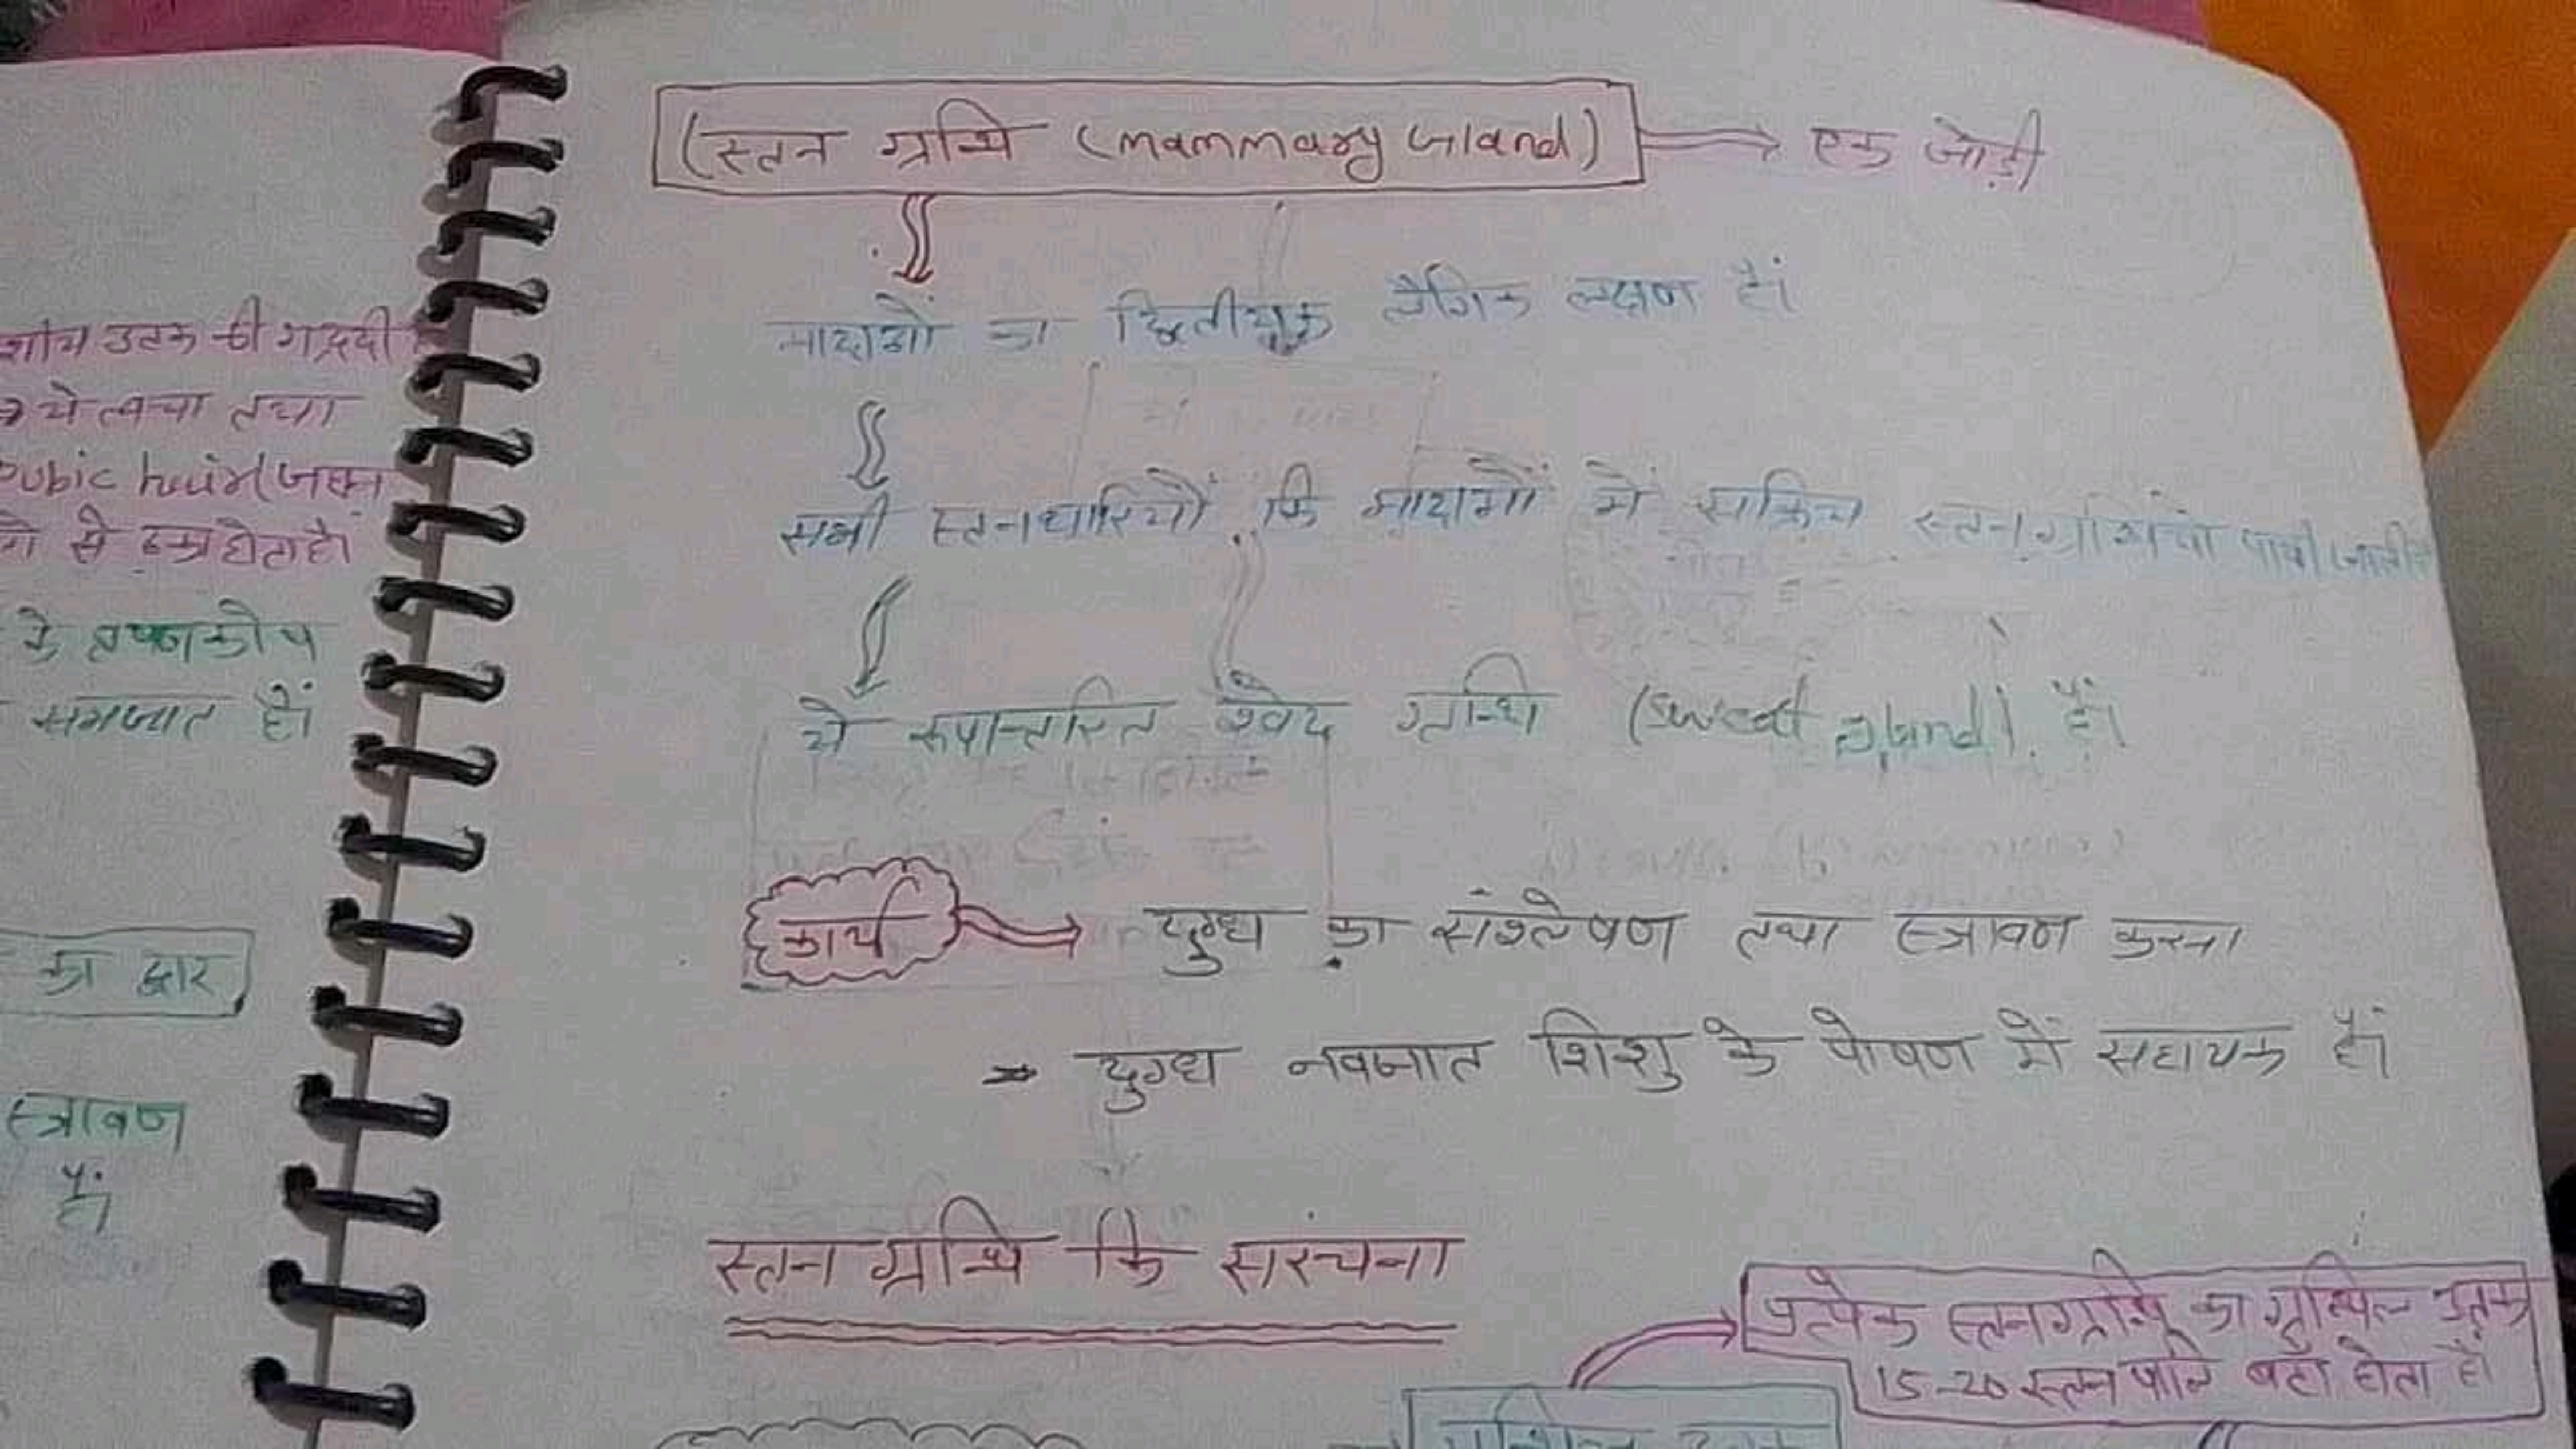 शीय उतक की गद्दी
ये त्वचा तथा
Pubic hair(जघन
से ढका होता है।
के वृषणकोष
समजात हैं।
का द्वार
स्त्रावण
हैं।
(स्तन ग्रन्थि (mammary Gland) → एक जोड़ी
मादाओं का द्वितीयक लैंगिक लक्षण है।
सभी स्तनधारियों कि मादाओं में सक्रिय स्तनग्रंथियां पायी जाती
ये रूपान्तरित श्वेद ग्रन्थि (sweat gland) हैं।
कार्य → दुग्ध का संश्लेषण तथा स्त्रावण करना
→ दुग्ध नवजात शिशु के पोषण में सहायक हैं।
स्तन ग्रन्थि कि सरंचना
प्रत्येक स्तनग्रन्थि का ग्रन्थिल उतक
15-20 स्तन पालि बटा होता है।